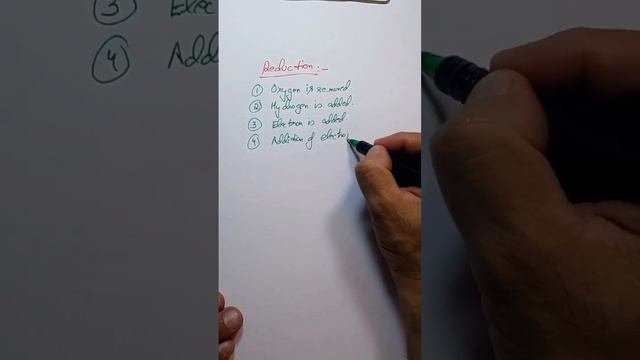 Reduction :-
① Oxygen is removed
② Hydrogen is added.
③ Electron is added.
④ Addition of electro
③ Ele
④ Add